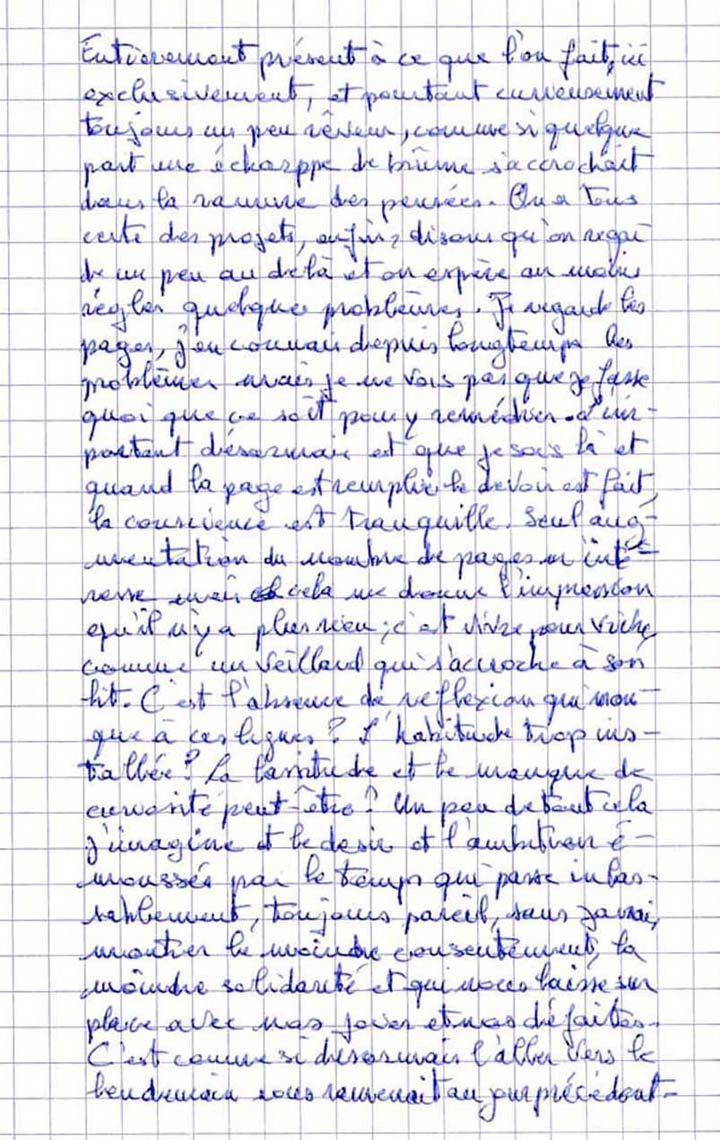 Entièrement présent à ce que l'on fait, ici
exclusivement, et pourtant curieusement
toujours un peu rêveur, comme si quelque
part une écharppe de brume s'accrochait
dans la ramure des pensées. On a tous
certe des projets, enfin, disons qu'on regar
de un peu au delà et on espère au moins
régler quelques problèmes. Je regarde les
pages, j'en connais depuis longtemps les
problèmes mais je ne vois pas que je fasse
quoi que ce soit pour y remédier. L'im-
portant désormais est que je sois là et
quand la page est remplie le devoir est fait,
la conscience est tranquille. Seul aug-
mentation du nombre de pages m'inté-
resse mais cela me donne l'impression
qu'il n'y a plus rien ; c'est vivre pour vivre,
comme un veillard qui s'accroche à son
lit. C'est l'absence de reflexion qui man-
que à ces lignes ? L'habitude trop ins-
tallée ? La lassitude et le manque de
curiosité peut-être ? Un peu de tout cela
j'imagine et le desir et l'ambition é-
moussés par le temps qui passe inlas-
sablement, toujours pareil, sans jamais
montrer le moindre consentement, la
moindre solidarité et qui nous laisse sur
place avec nos joies et nos défaites.
C'est comme si désormais l'aller vers le
lendemain nous ramenait au jour précédent.